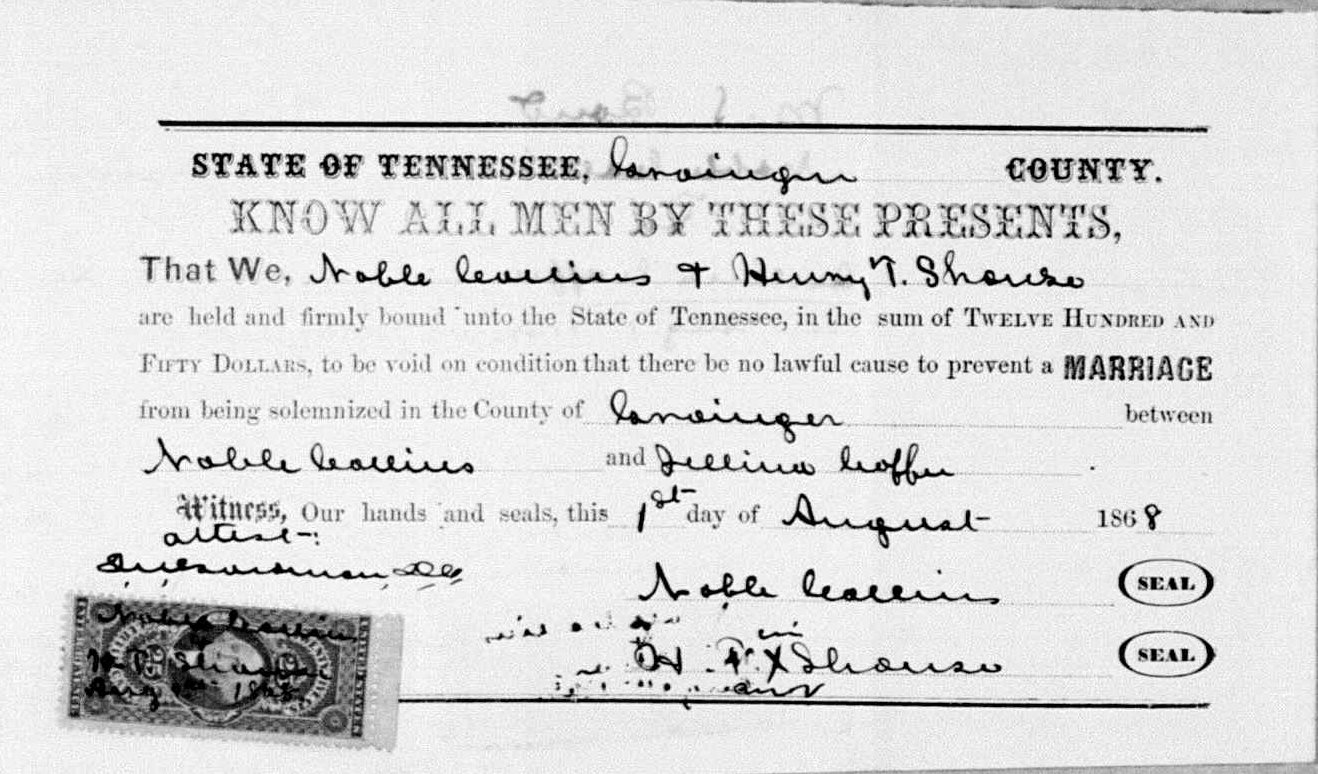 STATE OF TENNESSEE, Grainger COUNTY.
KNOW ALL MEN BY THESE PRESENTS,
That We, Noble Collins + Henry T. Shouse
are held and firmly bound unto the State of Tennessee, in the sum of TWELVE HUNDRED AND
FIFTY DOLLARS, to be void on condition that there be no lawful cause to prevent a MARRIAGE
from being solemnized in the County of Grainger between
Noble Collins and Coffer
Witness, Our hands and seals, this 1st day of August 1868
attest:
Noble Collins SEAL
H. T. X Shouse SEAL
Noble Collins
Aug 1868